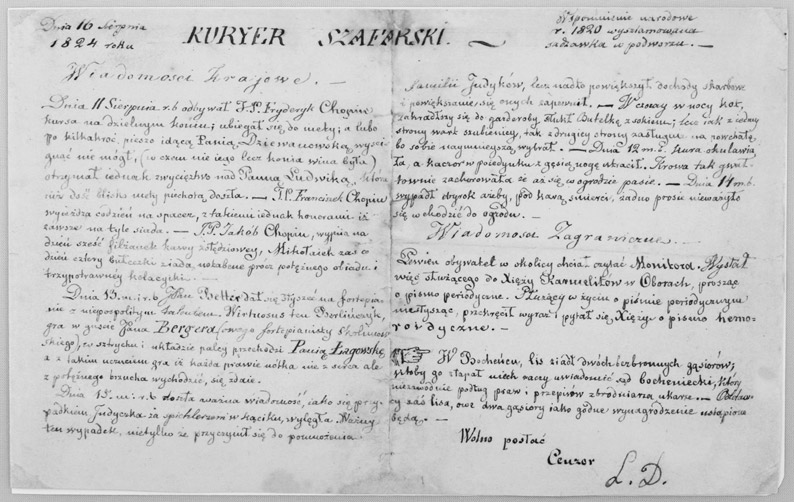 Dnia 16 Sierpnia
1824 roku
KURYER SZAFARSKI.
Wspomnienie narodowe
r. 1820 wyszlamowana
sadzawka w podworzu. —
Wiadomosci Krajowe. —
Dnia 11 Sierpnia r.b odbywał J.P. Fryderyk Chopin
kursa na dzielnym koniu; ubiegał się do mety; a lubo
po kilkakroć pieszo idącą Panią Dziewanowską wyści-
gnąć nie mógł, (w czem nie jego lecz konia wina była)
otrzymał jednak zwycięztwo nad Panną Ludwiką, która
już dość blisko mety piechotą doszła. — J.P. Franciszek Chopin
wyjeżdża codzień na spacer, z takiemi jednak honorami iż
zawsze na tyle siada. — J.P. Jakób Chopin, wypija na
dzień sześć filiżanek kawy żołędziowey, Mikołaiek zaś co
dzień cztery bułeczki ziada, notabene prócz potężnego obiadu i
trzypotrawney kolacyjki. —
Dnia 13. m. i r. b. Jan Better dał się słyszeć na fortepia-
nie z niepospolitym talentem. Virtuozus ten Berlińczyk,
gra w guście Jana Bergera (owego fortepianisty Skolimow-
skiego), w sztrychu i układzie palcy przechodzi Panią Łagowską,
a z takim uczuciem gra iż każda prawie nótka nie z serca ale
z potężnego brzucha wychodzić, się zdaie.
Dnia 15. m. i r. b doszła ważna wiadomość, iako się przy-
padkiem Indyczka za spichlerzem w kąciku, wylęgła. Ważny
ten wypadek, nietylko że przyczynił się do pomnożenia
familii Jndyków, lecz nadto powiększył dochody skarbowe
i powiększanie się onych zapewnił. — Wczoray w nocy kot,
zakradłszy się do garderoby, stłukł Butelkę z sokiem; lecz iak z iedney
strony wart szubienicy, tak z drugiey strony zasługuie na pochwałę,
bo sobie naymnieyszą wybrał. — Dnia 12 m. i. kura okulawia-
ła, a kaczor w poiedynku z gęsią nogę utracił. Krowa tak gwał-
townie zachorowała że aż się w ogrodzie pasie. — Dnia 14 m. b.
wypadł wyrok ażeby, pod karą śmierci, żadno prosie nieważyło
się wchodzić do ogrodu. —
Wiadomosci Zagraniczne. —
Pewien obywatel w okolicy chciał czytać Monitora. Wysłał
więc służącego do Xięży Karmelitów w Oborach, prosząc
o pismo peryodyczne. Służący w życiu o pismie peryodycznym
niesłysząc, przekręcił wyraz i pytał się Xięży o pismo hemo-
roidyczne. —
W Bocheńcu, lis ziadł dwóch bezbronnych gąsiorów;
ktoby go złapał niech raczy uwiadomić sąd bocheniecki, który
niezawodnie podług praw i przepisów zbrodniarza ukarze. — Oddaw-
cy zaś lisa, owe dwa gąsiory iako godne wynagrodzenie ustąpione
będą. —
Wolno posłać
Cenzor
L. D.